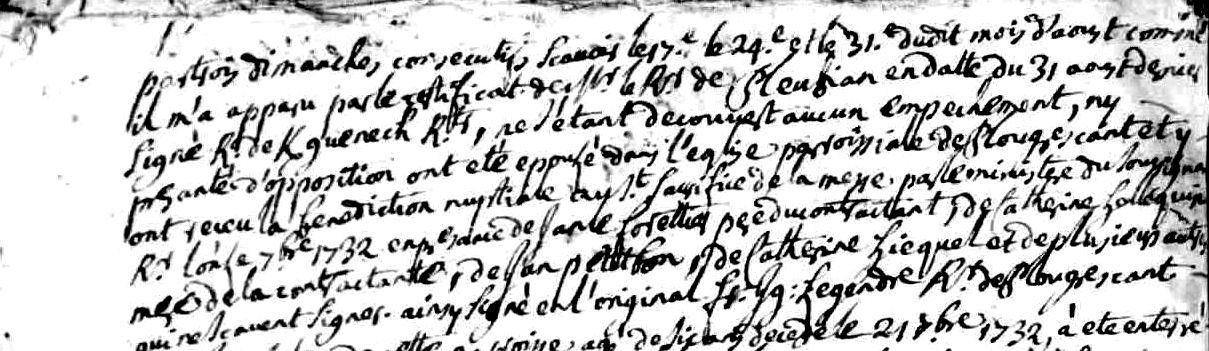 par trois dimanches consecutifs scavoir le 17.e le 24.e et le 31.e dudit mois d'aoust comme
il m'a apparu par le certificat de Mr. le Rr. de Pleubian en datte du 31 aoust dernier
signé Rr. de K quenech Rr., ne s'étant decouvert aucun empechement, ny
presanté d'opposition ont eté epousé dans l'eglise parroissiale de Plougrescant et y
ont receu la benediction nuptiale au St. sacrifice de la messe par le ministre du soussignant
Rr. l'onze 7bre 1732 en presance de Jan le forestier pere du contractant, de Catherine
mere de la contractante, de Jan petitbon, de Catherine Zicquel et de plusieurs autres
qui ne scavent signer. ainsy signé en l'original Legendre Rr. de Plougrescant
agé de six ans decedé le 21 7bre 1732, à eté enterré